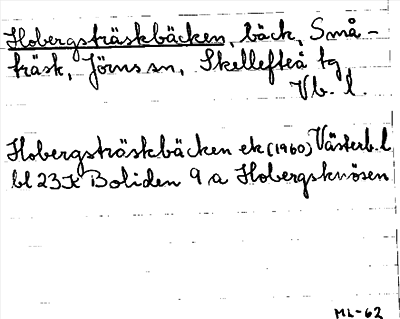 Hobergsträskbäcken, bäck, Små-
träsk, Jörns sn, Skellefteå tg
Vb. l.
Hobergsträskbäcken ek (1960) Västerb. l
bl 23K Boliden 9 a Hobergsknösen
ML-62